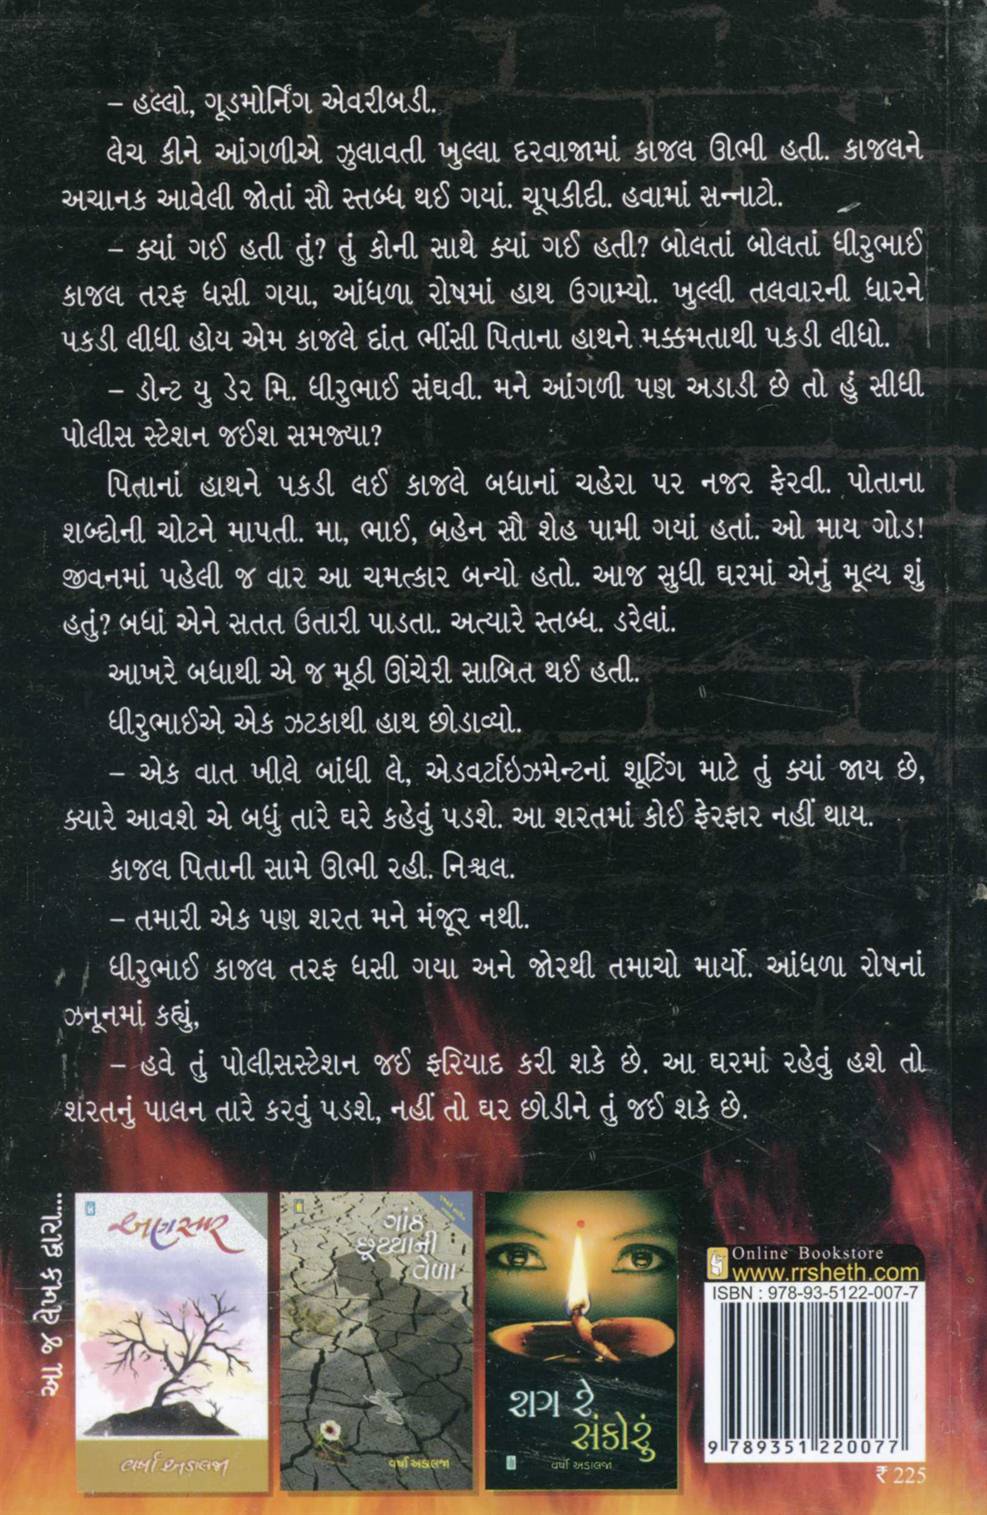 – હલ્લો, ગૂડમોર્નિંગ એવરીબડી.
લેચ કીને આંગળીએ ઝુલાવતી ખુલ્લા દરવાજામાં કાજલ ઊભી હતી. કાજલને
અચાનક આવેલી જોતાં સૌ સ્તબ્ધ થઈ ગયાં. ચૂપકીદી. હવામાં સન્નાટો.
– ક્યાં ગઈ હતી તું? તું કોની સાથે ક્યાં ગઈ હતી? બોલતાં બોલતાં ધીરુભાઈ
કાજલ તરફ ધસી ગયા, આંધળા રોષમાં હાથ ઉગામ્યો. ખુલ્લી તલવારની ધારને
પકડી લીધી હોય એમ કાજલે દાંત ભીંસી પિતાના હાથને મક્કમતાથી પકડી લીધો.
– ડોન્ટ યુ ડેર મિ. ધીરુભાઈ સંઘવી. મને આંગળી પણ અડાડી છે તો હું સીધી
પોલીસ સ્ટેશન જઈશ સમજ્યા?
પિતાનાં હાથને પકડી લઈ કાજલે બધાનાં ચહેરા પર નજર ફેરવી. પોતાના
શબ્દોની ચોટને માપતી. મા, ભાઈ, બહેન સૌ શેહ પામી ગયાં હતાં. ઓ માય ગોડ!
જીવનમાં પહેલી જ વાર આ ચમત્કાર બન્યો હતો. આજ સુધી ઘરમાં એનું મૂલ્ય શું
હતું? બધાં એને સતત ઉતારી પાડતા. અત્યારે સ્તબ્ધ. ડરેલાં.
આખરે બધાથી એ જ મૂઠી ઊંચેરી સાબિત થઈ હતી.
ધીરુભાઈએ એક ઝટકાથી હાથ છોડાવ્યો.
– એક વાત ખીલે બાંધી લે, એડવર્ટાઇઝમેન્ટનાં શૂટિંગ માટે તું ક્યાં જાય છે,
ક્યારે આવશે એ બધું તારે ઘરે કહેવું પડશે. આ શરતમાં કોઈ ફેરફાર નહીં થાય.
કાજલ પિતાની સામે ઊભી રહી. નિશ્ચલ.
– તમારી એક પણ શરત મને મંજૂર નથી.
ધીરુભાઈ કાજલ તરફ ધસી ગયા અને જોરથી તમાચો માર્યો. આંધળા રોષનાં
ઝનૂનમાં કહ્યું,
– હવે તું પોલીસસ્ટેશન જઈ ફરિયાદ કરી શકે છે. આ ઘરમાં રહેવું હશે તો
શરતનું પાલન તારે કરવું પડશે, નહીં તો ઘર છોડીને તું જઈ શકે છે.
આ જ લેખક દ્વારા...
અણસાર
વર્ષા અડાલજા
ગાંઠ
છૂટ્યાની
વેળા
વર્ષા અડાલજા
શગ રે
સંકોરું
વર્ષા અડાલજા
Online Bookstore
www.rrsheth.com
ISBN : 978-93-5122-007-7
9 789351 220077
₹ 225